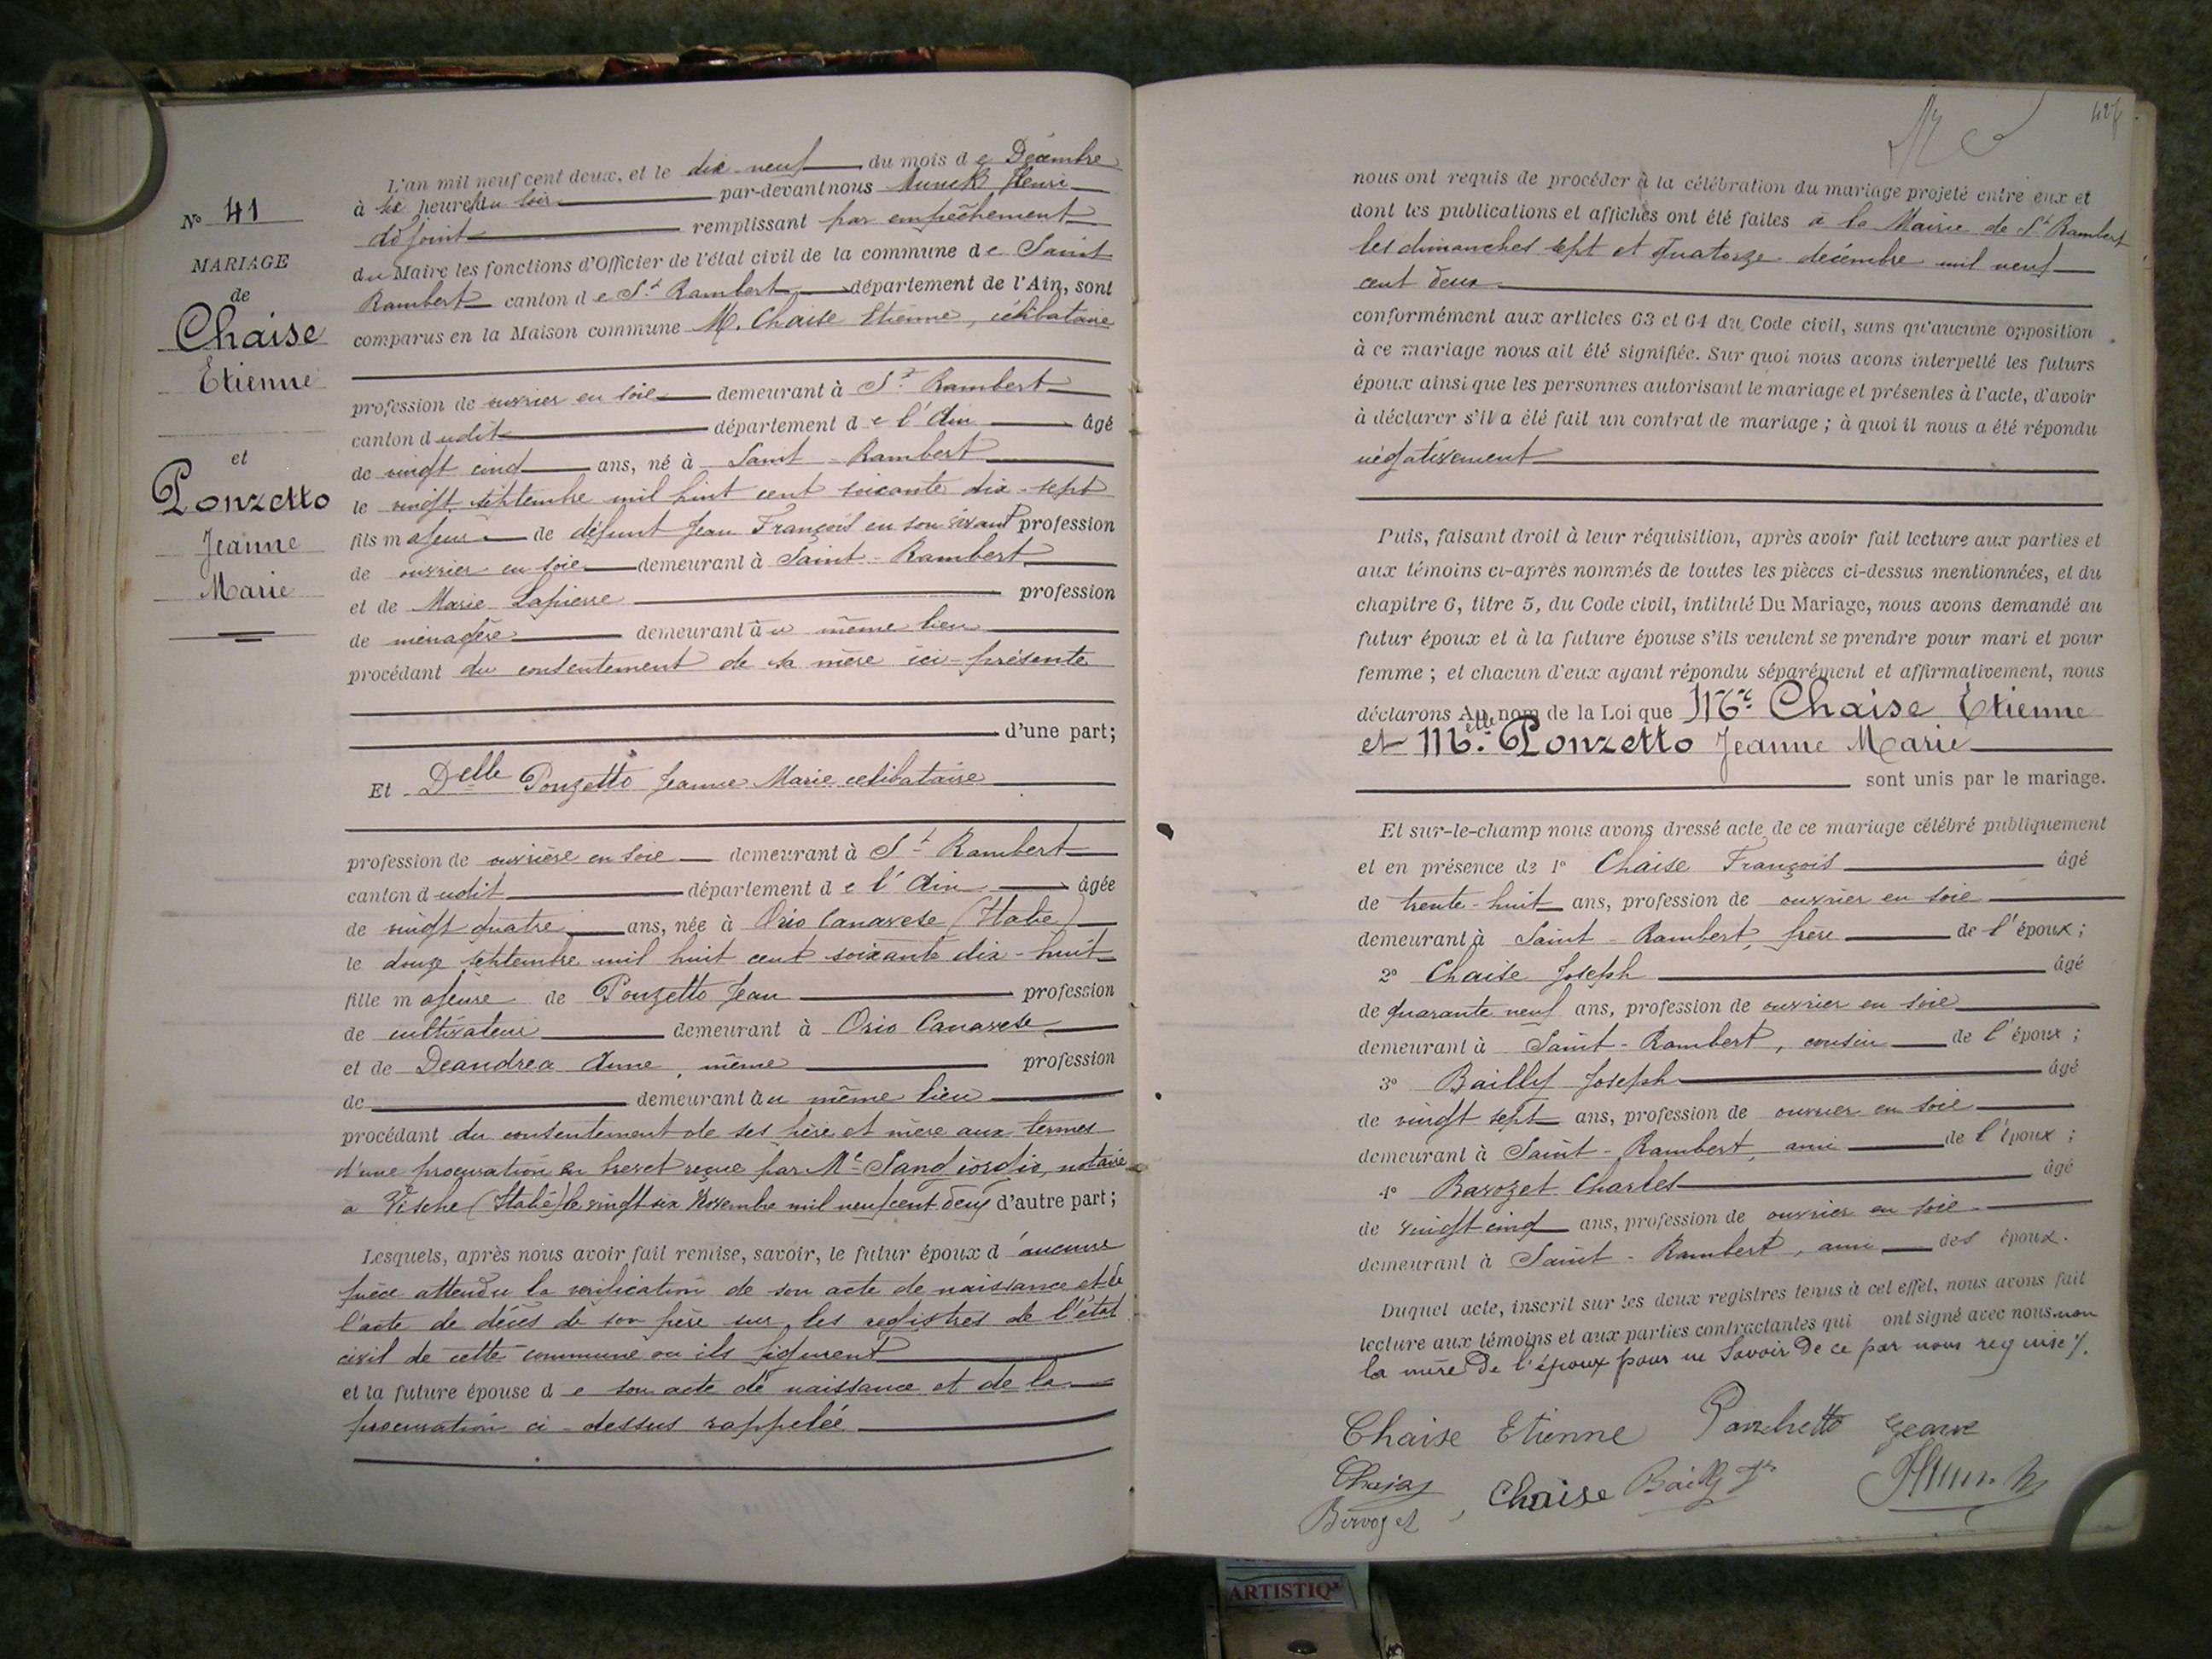 L'an mil neuf cent deux, et le dix neuf du mois de Décembre
à six heures du soir par-devant nous Munck Henri
adjoint remplissant par empêchement
du Maire les fonctions d'Officier de l'état civil de la commune de Saint
Rambert canton de St Rambert département de l'Ain, sont
comparus en la Maison commune M. Chaise Etienne, célibataire
profession de ouvrier en soie demeurant à St Rambert
canton dudit département de l'Ain âgé
de vingt cinq ans, né à Saint-Rambert
le vingt septembre mil huit cent soixante dix-sept
fils majeur de défunt Jean François en son vivant profession
de ouvrier en soie demeurant à Saint-Rambert
et de Marie Lapierre profession
de ménagère demeurant au même lieu
procédant du consentement de sa mère ici-présente
d'une part;
Et Delle Ponzetto Jeanne Marie célibataire
profession de ouvrière en soie demeurant à St Rambert
canton dudit département de l'Ain âgée
de vingt quatre ans, née à Orio Canavese (Italie)
le douze septembre mil huit cent soixante dix-huit
fille majeure de Ponzetto Jean profession
de cultivateur demeurant à Orio Canavese
et de Deandrea Anne, même profession
de demeurant au même lieu
procédant du consentement de ses père et mère aux termes
d'une procuration en brevet reçue par Me Sangiorgio, notaire
à Vische (Italie) le vingt six Novembre mil neuf cent deux d'autre part;
Lesquels, après nous avoir fait remise, savoir, le futur époux d'aucune
pièce attendu la vérification de son acte de naissance et de
l'acte de décès de son père sur les registres de l'état
civil de cette commune où ils figurent
et la future épouse de son acte de naissance et de la
procuration ci-dessus rappelée
No 41
MARIAGE
de
Chaise
Etienne
et
Ponzetto
Jeanne
Marie
nous ont requis de procéder à la célébration du mariage projeté entre eux et
dont les publications et affiches ont été faites à la Mairie de St Rambert
les dimanches sept et quatorze décembre mil neuf
cent deux
conformément aux articles 63 et 64 du Code civil, sans qu'aucune opposition
à ce mariage nous ait été signifiée. Sur quoi nous avons interpellé les futurs
époux ainsi que les personnes autorisant le mariage et présentes à l'acte, d'avoir
à déclarer s'il a été fait un contrat de mariage ; à quoi il nous a été répondu
négativement
Puis, faisant droit à leur réquisition, après avoir fait lecture aux parties et
aux témoins ci-après nommés de toutes les pièces ci-dessus mentionnées, et du
chapitre 6, titre 5, du Code civil, intitulé Du Mariage, nous avons demandé au
futur époux et à la future épouse s'ils veulent se prendre pour mari et pour
femme ; et chacun d'eux ayant répondu séparément et affirmativement, nous
déclarons Au nom de la Loi que Mr Chaise Etienne
et Melle Ponzetto Jeanne Marie
sont unis par le mariage.
Et sur-le-champ nous avons dressé acte de ce mariage célébré publiquement
et en présence de 1º Chaise François âgé
de trente-huit ans, profession de ouvrier en soie
demeurant à Saint-Rambert, frère de l'époux ;
2º Chaise Joseph âgé
de quarante neuf ans, profession de ouvrier en soie
demeurant à Saint-Rambert, cousin de l'époux ;
3º Bailly Joseph âgé
de vingt sept ans, profession de ouvrier en soie
demeurant à Saint-Rambert, ami de l'époux ;
4º Barozet Charles âgé
de vingt cinq ans, profession de ouvrier en soie
demeurant à Saint-Rambert, ami des époux.
Duquel acte, inscrit sur les deux registres tenus à cet effet, nous avons fait
lecture aux témoins et aux parties contractantes qui ont signé avec nous non
la mère de l'époux pour ne savoir de ce par nous requise
Chaise Etienne
Chaise Bailly
ARTISTIQ